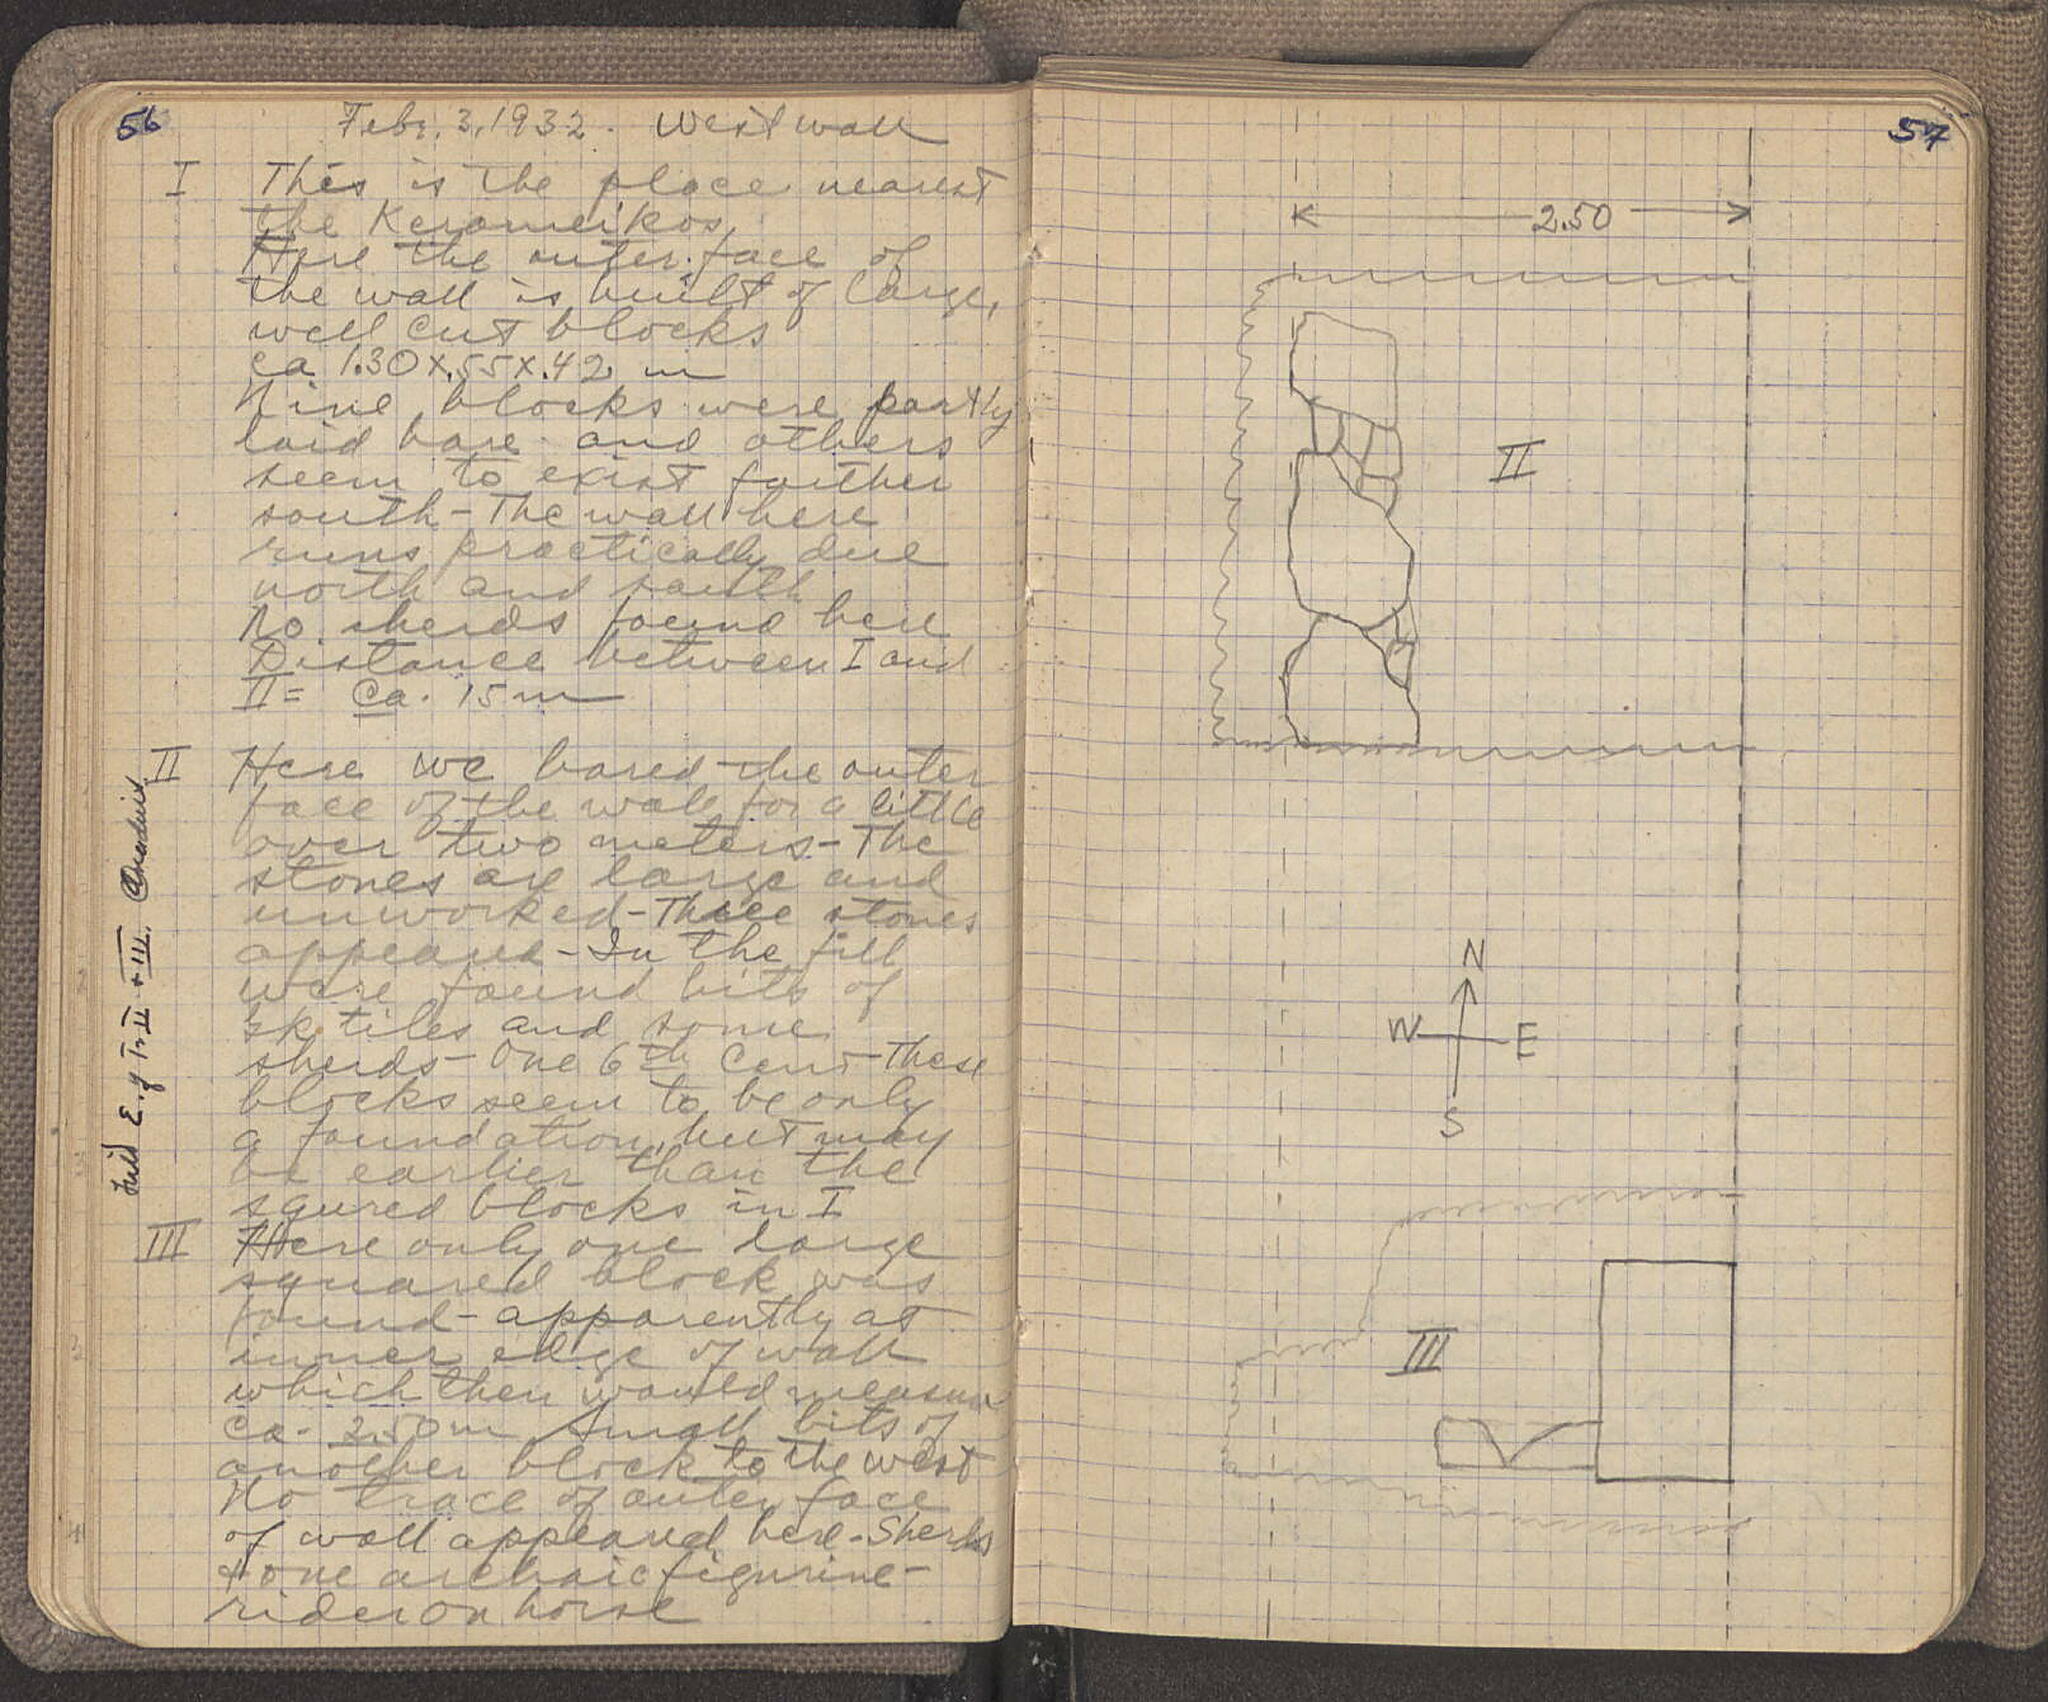 56
Febr. 3, 1932. West wall
I This is the place nearest
the Kerameikos
Here the outer face of
the wall is built of large,
well cut blocks
ca 1.30 x .55 x .42 m
Nine blocks were partly
laid bare and others
seem to exist further
south - The wall here
runs practically due
north and south
No sherds found here
Distance between I and
II = ca. 15 m
II Here we bared the outer
face of the wall for a little
over two meters - The
stones are large and
unworked - Three stones
appeared - In the fill
were found bits of
Gk tiles and some
sherds - One 6th Cent - These
blocks seem to be only
a foundation, but may
be earlier than the
squred blocks in I
III Here only one large
squared block was
found - apparently at
inner edge of wall
which then would measure
ca. 2.50 m Small bits of
another block to the west
No trace of outer face
of wall appeared here - Sherds
+ one archaic figurine -
rider on horse
E. of Tr. II + III.
57
2.50
II
N
W E
S
III